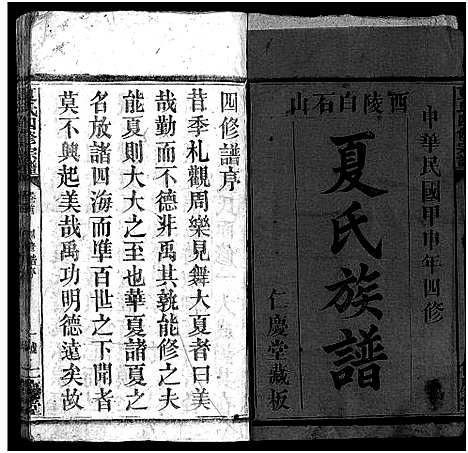 中華民國甲申年四修
西陵白石山
夏氏族譜
仁慶堂藏板
四修譜序
昔季札觀周樂見舞大夏者曰美
哉勤而不德非禹其孰能修之夫
能夏則大大之至也華夏諸夏之
名放諸四海而準百世之下開者
莫不興起美哉禹功明德遠矣故
夏氏四修宗譜